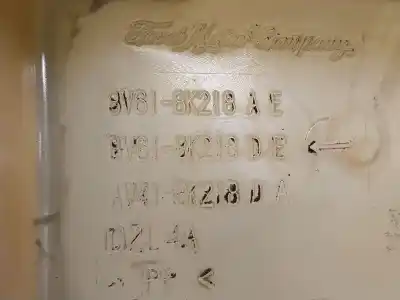 Ford Motor Company
BV61-8K218 A E
BV61-8K218 D E
AV41-8K218 D A